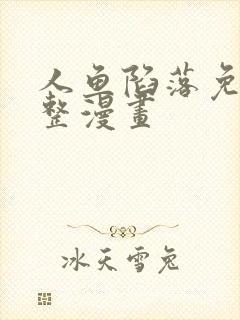 人鱼陷落免
整漫畫
冰天雪兔